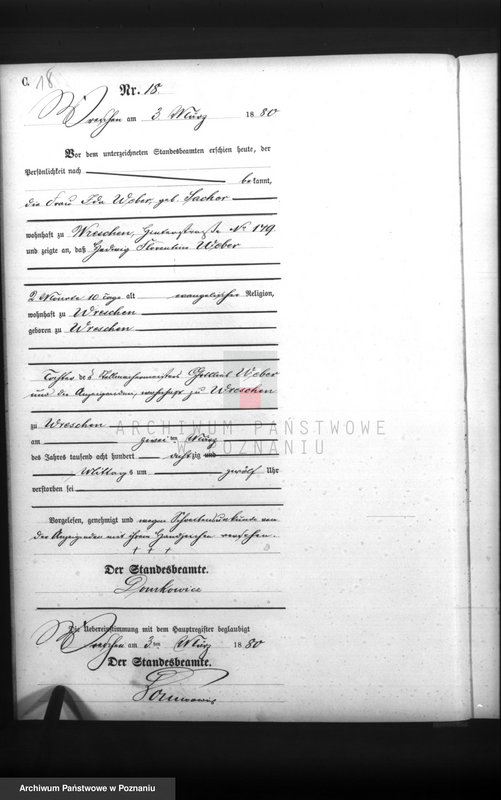 C.
18.
Nr. 18.
Wreschen am 3 März 1880
Vor dem unterzeichneten Standesbeamten erschien heute, der
Persönlichkeit nach bekannt,
die Frau Ida Weber, geb. Sachor
wohnhaft zu Wreschen, Hinterstraße No 179
und zeigte an, daß Hedwig Florentine Weber
2 Monate 10 Tage alt evangelischer Religion,
wohnhaft zu Wreschen
geboren zu Wreschen
Tochter des Stellmachermeisters Gottlieb Weber
und der Anzeigenden, wohnhaft zu Wreschen
zu Wreschen
am zwei ten März
des Jahres tausend acht hundert achtzig und
Mittags um zwölf Uhr
verstorben sei
Vorgelesen, genehmigt und wegen Schreibensunkunde von
der Anzeigenden mit ihrem Handzeichen versehen.
+ + +
Der Standesbeamte.
Die Uebereinstimmung mit dem Hauptregister beglaubigt
Wreschen am 3 ten März 1880
Der Standesbeamte.
ARCHIWUM PAŃSTWOWE
W POZNANIU
Archiwum Państwowe w Poznaniu